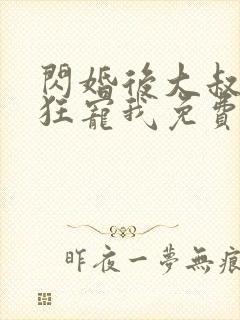 閃婚後大叔
狂寵我免費
昨夜一夢無痕